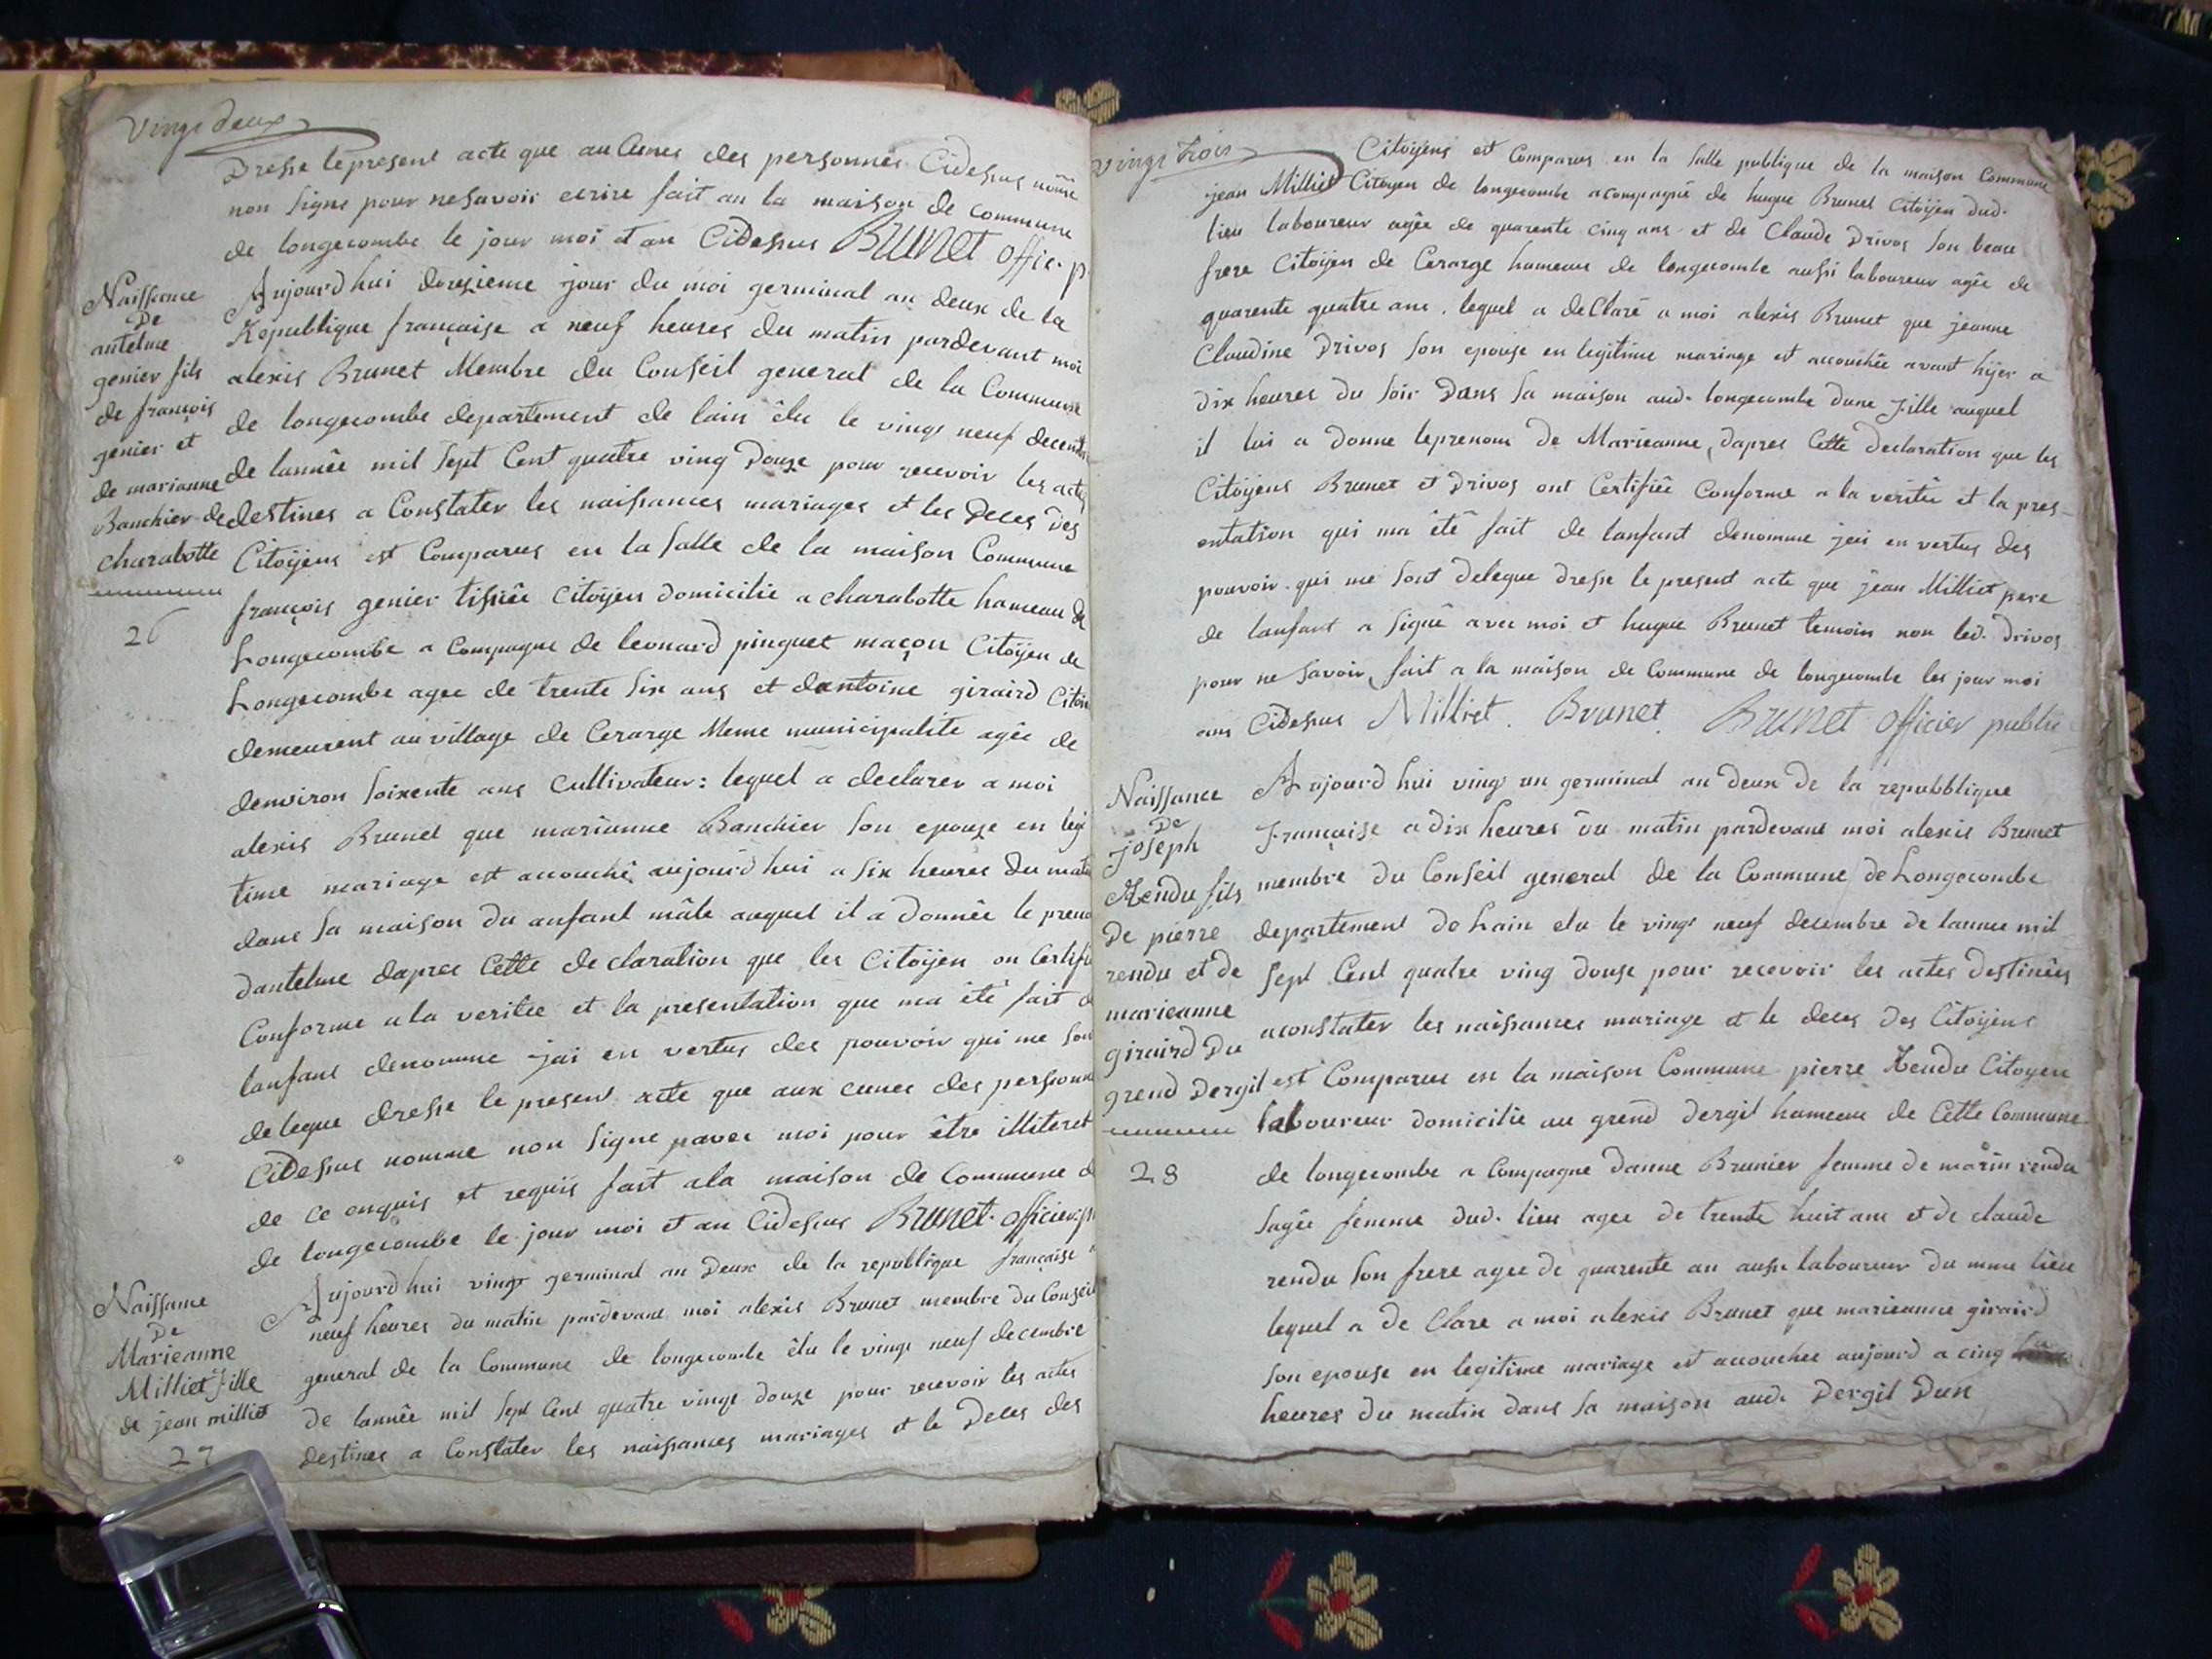 Vingt deux
Dresse le present acte que au Cunes des personnes Cidessus nomme
non signe pour ne savoir ecrire fait an la maison de commune
de longecombe le jour moi et an Cidessus Brunet offic. p
Naissance
De
antelme
genier fils
de françois
genier et
de marianne
Banchier de
charabotte
26
Aujourd hui douzieme jour du moi germinal an deux de la
Republique française a neuf heures du matin pardevant moi
alexis Brunet Membre du Conseil general de la Commune
de longecombe departement de lain êlu le vingt neuf decemb
de lannêe mil sept Cent quatre ving Douze pour recevoir les acte
destines a Constater les naissances mariages et les Deces des
Citoÿens est Comparus en la salle de la maison Commune
françois genier tissiêe Citoÿen domicilie a charabotte hameau de
Longecombe a Compagne de leonard pinguet maçon Citoÿen de
Longecombe agee de trente six ans et dantoine giraird Citoie
demeurent au village de Cerarge Meme municipalite agêe de
denviron soixente ans Cultivateur: lequel a declarer a moi
alexis Brunet que marianne Banchier son epouze en legi
time mariage est accouchê aujourd hui a six heures du mati
dans sa maison du anfant mâle auquel il a Donnêe le preno
Dantelme dapres Cette declaration que les Citoÿen on Certifie
Conforme a la veritee et la presentation que ma êtê fait d
lanfant denomme jai en vertus des pouvoir qui me son
delegue dresse le present acte que aux cunes des personne
Cidessus nomme non signe pavec moi pour être illiteret
de ce enquis et requis fait ala maison de Commune d
de longecombe le jour moi et an Cidessus Brunet officier p
Naissance
De
Marieanne
Milliet fille
de jean milliet
27
Aujourd hui vingt germinal an Deux de la republique française a
neuf heures du matin pardevant moi alexis Brunet membre du Conseil
general de la Commune de longecombe êlu le vingt neuf decembre
De lannêe mil sept Cent quatre vingt douze pour recevoir les actes
destines a Constater les naissances mariages et le Deces des
Vingt trois
Citoÿens est Comparus en la salle publique de la maison Commune
jean Milliet Citoÿen de longecombe acompagné de hugue Brunet Citoÿen dud.
lieu laboureur agêe de quarente cinq ans et de Claude Drivos son beau
frere Citoÿen de Cerarge hameau de longecombe aussi laboureur agêe de
quarente quatre ans. lequel a declarê a moi alexis Brunet que jeanne
Claudine Drivos son epouse en legitime mariage et accouchêe avant hÿer a
dix heures du soir Dans sa maison aud. longecombe dune fille auquel
il lui a Donne leprenom de Marieanne, dapres Cette declaration que les
Citoÿens Brunet et Drivos ont Certifiêe Conforme a la veritêe et la pres
entation qui ma êtê fait de lanfant denomme jai en vertus des
pouvoir qui me sont delegue dresse le present acte que jean Milliet pere
de lanfant a signê avec moi et hugue Brunet temoin non led. Drivos
pour ne savoir, fait a la maison de Commune de longecombe les jour moi
ans Cidessus Milliet. Brunet. Brunet officier public
Naissance
De
joseph
Rendu fils
De pierre
rendu et de
marieanne
giraird Du
grend Dergil
28
Aujourd hui ving un germinal an deux de la repubblique
Française a dix heures du matin pardevant moi alexis Brunet
membre du Conseil general de la Commune de Longecombe
departement de Lain elu le vingt neuf decembre de lannee mil
sept Cent quatre ving douse pour recevoir les actes destinêes
aconstater les naissances mariage et le deces des Citoÿens
est Comparue en la maison Commune pierre Rendu Citoyen
laboureur domicilie au grend dergil hameau de Cette Commune
de longecombe a Compagne Danne Brunier femme de marin rendu
sagêe femme dud. lieu agee de trente huit ans et de claude
rendu son frere agee de quarente an aussi laboureur du mme lieu
lequel a de Clare a moi alexis Brunet que marieanne giraird
son epouse en legitime mariage et accouchee aujourd a cinq
heures du matin dans sa maison aud. Dergil Dun